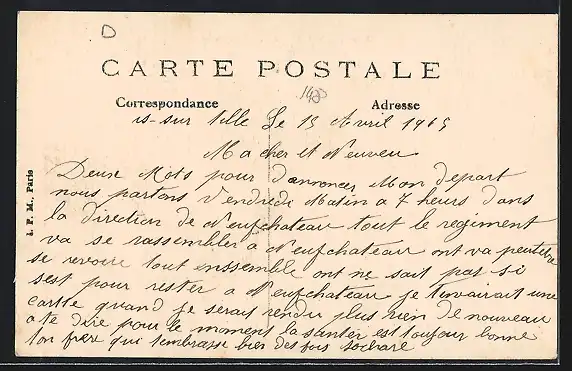 D
CARTE POSTALE
1420
Correspondance Adresse
is-sur tille Le 15 Avril 1915
Ma cher et Neuveu
Deux Mots pour d'annoncer Mon depart
nous partons Vendredi Matin a 7 heurs dans
la direction de Neufchateau tout le regiment
va se rassembler a Neufchateau ont va peutetre
se revoire tout enssemble ont ne sait pas si
sest pour rester a Neufchateau je t'envairait une
cartte quand je serais rendu plus rien de nouveau
a te dire pour le moment la santer est toujour bonne
ton frere qui tembrasse bien des fois
I. P. M., Paris